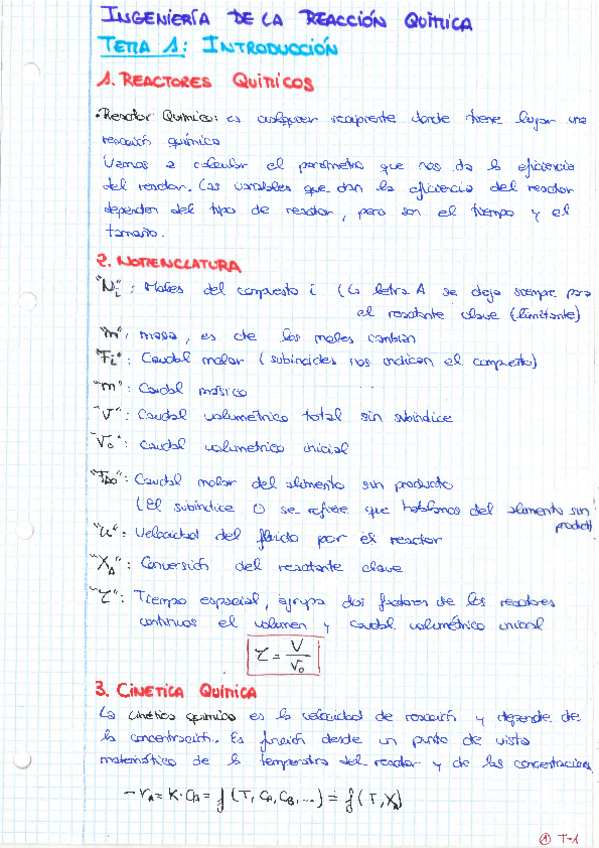 INGENIERÍA DE LA REACCIÓN QUÍMICA
TEMA 1: INTRODUCCIÓN
1. REACTORES QUÍMICOS
·Reactor Químico: es cualquier recipiente donde tiene lugar una
reacción química
Vamos a calcular el parámetro que nos da la eficiencia
del reactor. Las variables que dan la eficiencia del reactor
dependen del tipo de reactor, pero son el tiempo y el
tamaño.
2. NOMENCLATURA
"Ni": Moles del compuesto i (la letra A se deja siempre para
el reactante clave (limitante)
"m": masa, es de los moles cambian
"Fi": Caudal molar (subíndices nos indican el compuesto)
"m": Caudal másico
"V": Caudal volumétrico total sin subíndice
"V0": Caudal volumetrico inicial
"FA0": Caudal molar del alimento sin producto
(El subíndice 0 se refiere que hablamos del alimento sin
product)
"u": Velocidad del fluido por el reactor
"XA": Conversión del reactante clave
"τ": Tiempo espacial, agrupa dos factores de los reactores
continuos el volumen y caudal volumétrico inicial
τ = V/V0
3. CINÉTICA QUÍMICA
La cinética química es la velocidad de reacción y depende de
la concentración. Es función desde un punto de vista
matemático de la temperatra del reactor y de las concentraciones
-rA = K·CA = f(T, CA, CB, ...) = f(T, XA)
1 T-1